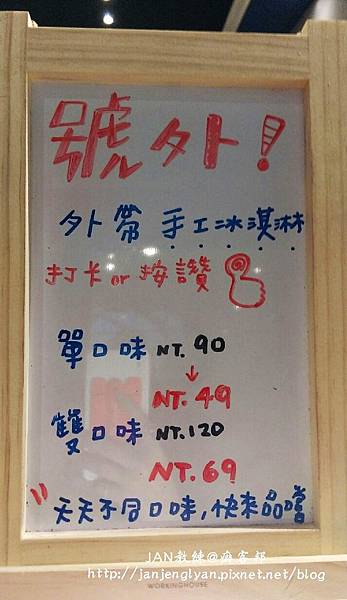 號外!
外帶 手工冰淇淋
打卡 or 按讚
單口味 NT. 90
↓
NT. 49
雙口味 NT. 120
NT. 69
天天不同口味,快來品嚐
JAN教練@痞客邦
http://janjenglyan.pixnet.net/blog
WORKINGHOUSE